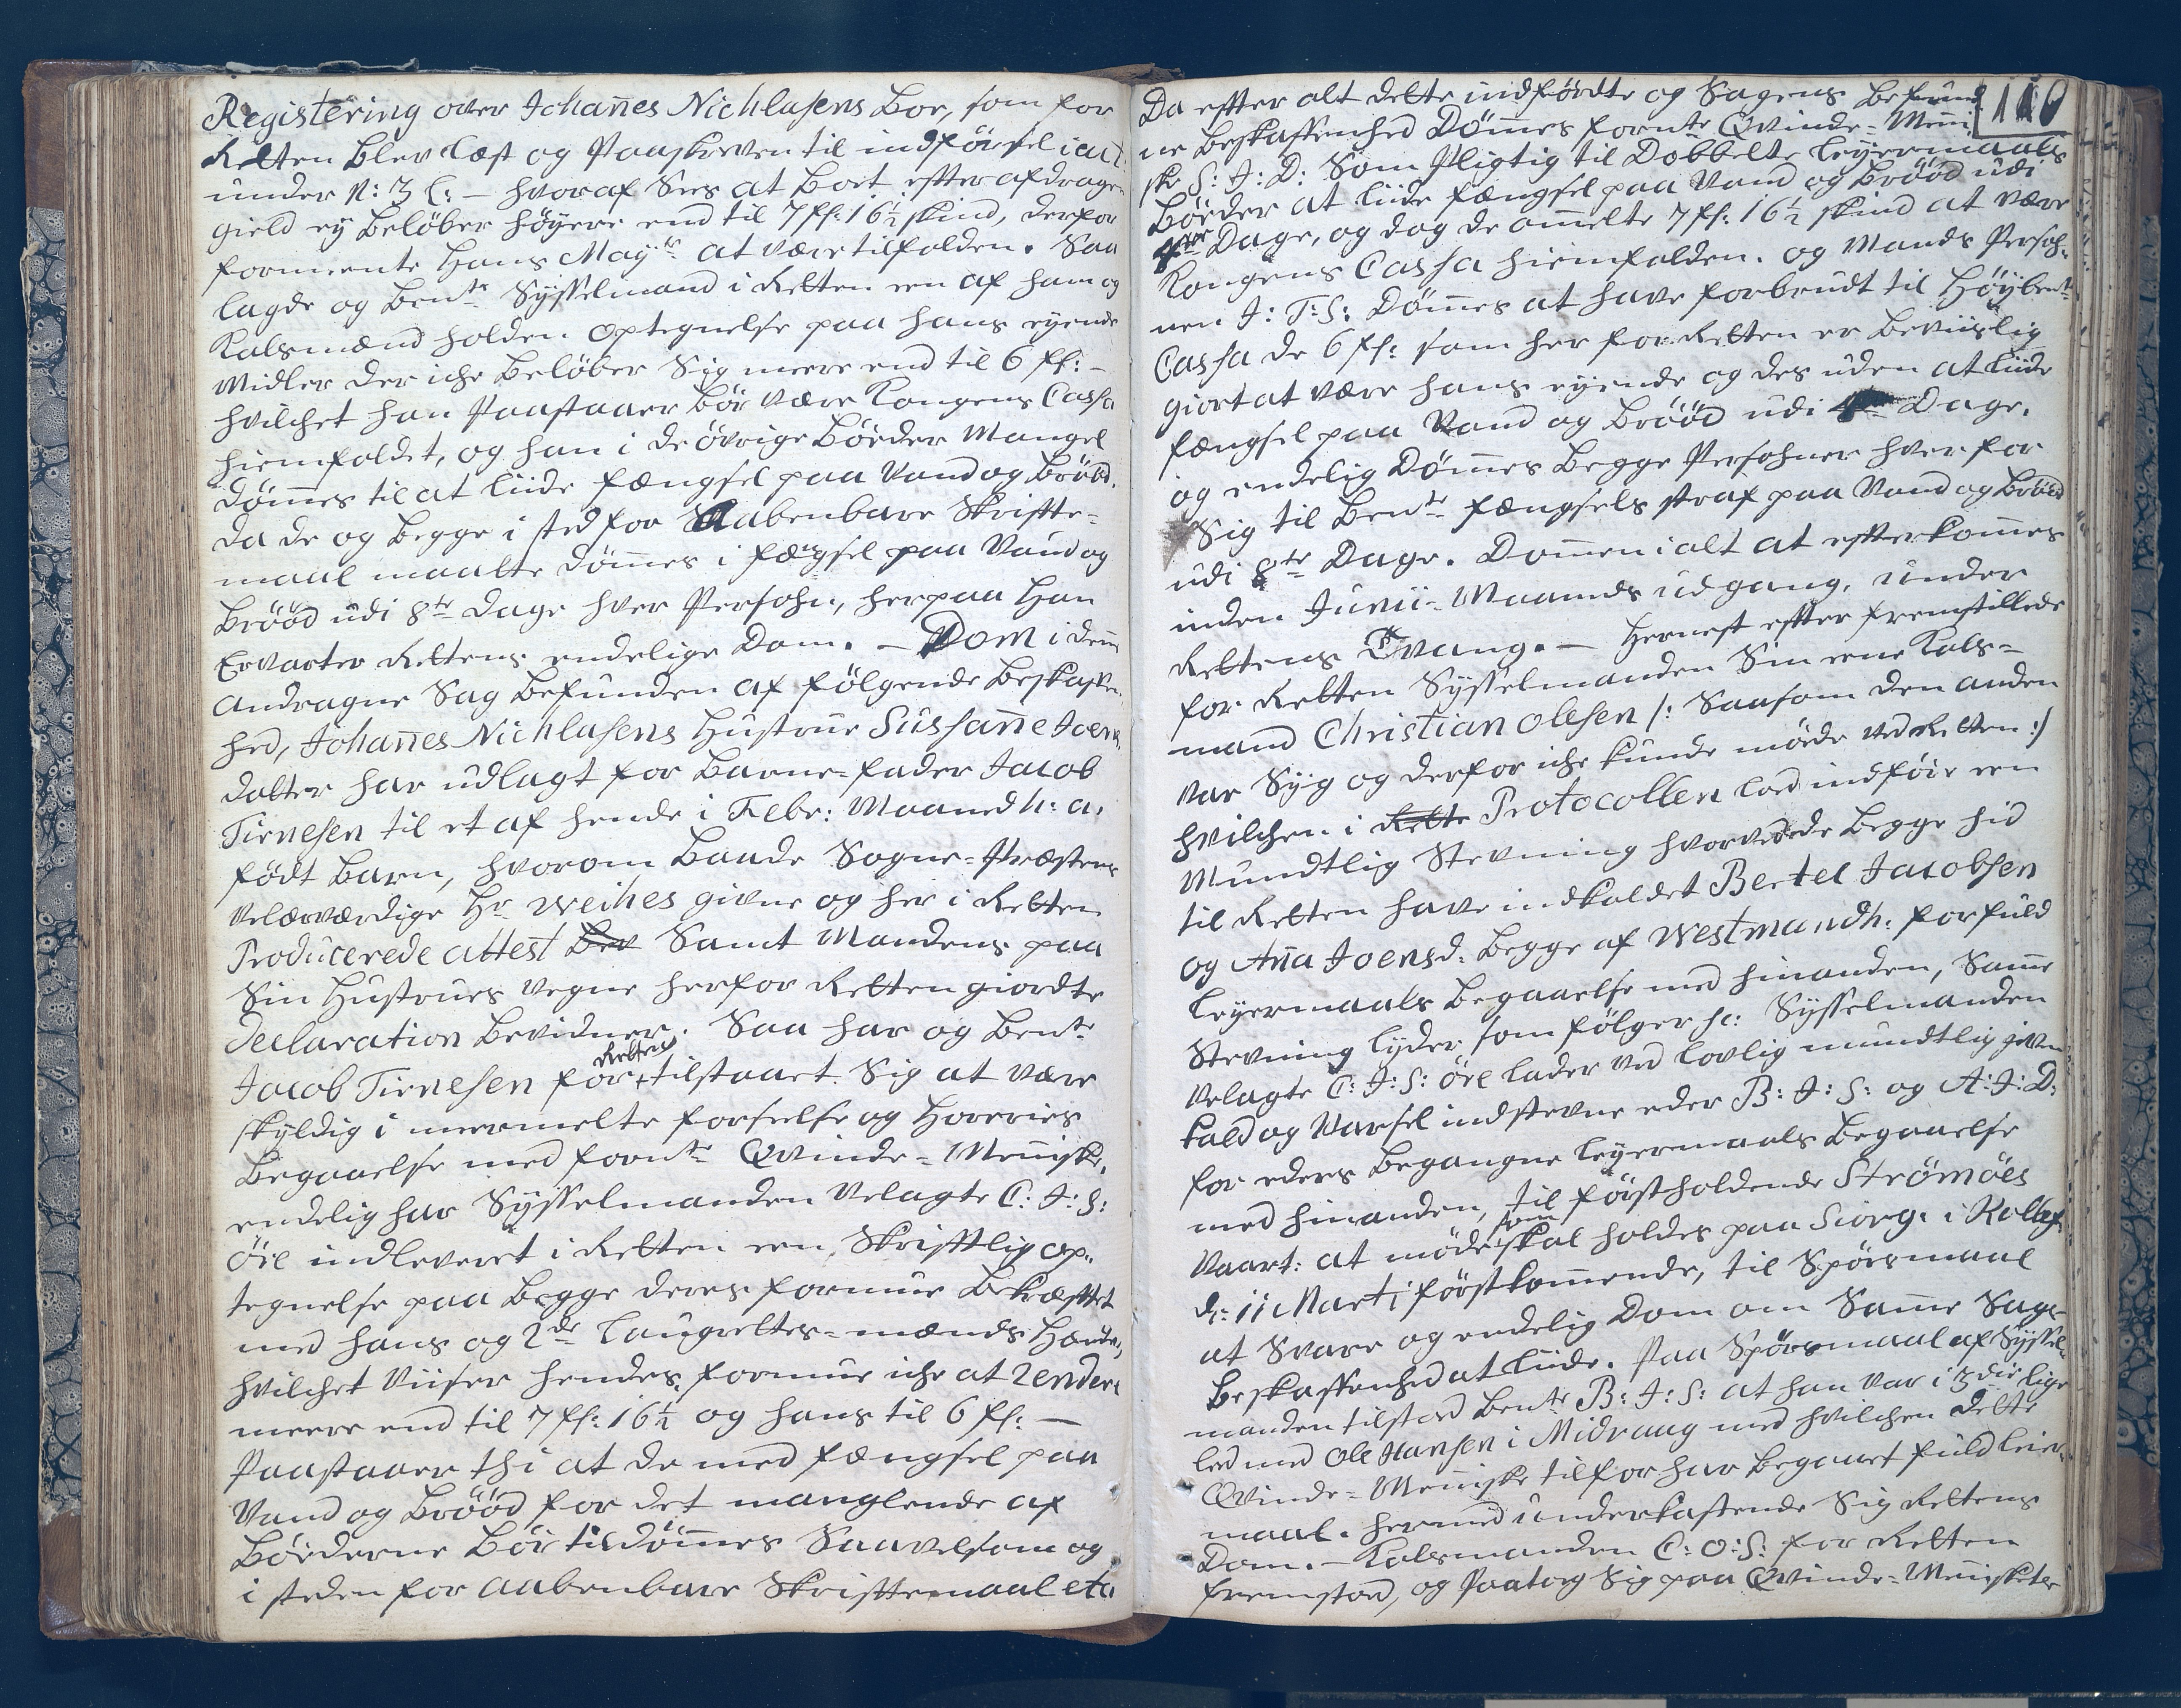 Registering over Johannes Nichlasens Boe, som for
Retten blev læst og Paaskreven til indførsel i act
under N: 3 C: – hvoraf Sees at Boet efter afdragen
gield ey beløber høyere end til 7 fſ: 16½ skind, derfor
formeente Hans Mayᵗᵗ at være tilfalden. Saa
lagde og Benᵗᵉ Sysselmand i Retten een af ham og
Kalsmænd holden optegnelse paa hans eyende
Midler der iche beløber Sig meere end til 6 fſ: –
hvilchet han Paastaaer bør være Kongens Cassa
hiemfaldet, og han i de øvrige bøeders Mangel
dømmes til at liide fængsel paa Vand og brød.
da de og begge i sted for Aabenbare Skrifte-
maal maatte dømmes i fængsel paa Vand og
brøød udi 8ᵗᵉ Dage hver Persohn, herpaa Han
Ervarter Rettens endelige Dom. – Dom i denn
andragne Sag befunden af følgende beskaffen-
hed, Johannes Nichlasens Hustrue Sussanne Joens
datter har udlagt for barne-fader Jacob
Tirnesen til et af hende i Febr: Maaned h: a:
født barn, hvorom baade Sogne-Præstens
Velærværdige Hr Weihes givne og her i Retten
Producerede attest Bev Samt Mandens paa
Sin Hustrues Vegne her for Retten giordte
declaration bevidner. Saa har og Benᵗᵉ
Jacob Tirnesen for Retten tilstaaet Sig at være
skyldig i meermelte forseelse og Horeries
begaaelse med fornᵗᵉ Qvinde-Menniske,
endelig har Sysselmanden Velagte C: J: S:
Öre indleveret i Retten een Skrifftlig op-
tegnelse paa begge deres formue bekræfftet
med hans og 2de Laugrettes-mænds Hænder,
hvilchet Viiser hendes formue iche at rendere
meere end til 7 fſ: 16½ og hans til 6 fſ: –
Paastaaer thi at de med fængsel paa
Vand og brøød for det manglende af
bøederne bør tildømmes Saavelsom og
i steden for aabenbare Skrifftemaal etc
110
Da effter alt dette indførdte og Sagens befund
ne beskaffenhed Dømmes fornᵗᵉ Qvinde-Menni
ske S: J: D: Som Pligtig til Dobbelte leyermaals
bøeder at liide fængsel paa Vand og brøød udi
4re Dage, og dog de ommelte 7 fſ: 16½ skind at være
Kongens Cassa hiemfalden. og Mands Persoh-
nen J: T: S: Dømmes at have forbrudt til Høybenᵗᵉ
Cassa de 6 fſ: som her for Retten er beviislig
giort at være hans eyende og des uden at liide
fængsel paa Vand og brøød udi 4re Dage.
og endelig Dømmes begge Persohner hver for
Sig til Benᵗᵉ fængsels straf paa Vand og brød
udi 8ᵗᵉ Dage. Dommen i alt at effterkommes
inden Junii-Maaneds udgang, under
Rettens Tvang. – Hernest effter fremstillede
for Retten Sysselmanden Sin eene Kals-
mand Christian Olesen /: Saasom den anden
var Syg og derfor iche kunde møde ved Retten :/
hvilchen i Rette Protocollen lod indføre een
Mundtlig Stevning hvorved de begge hid
til Retten have indkaldet Bertel Jacobsen
og Anna Joensd: begge af Westmandh: for fuld
leyermaals begaaelse med hinanden, Samme
Stevning lyder som følger sc: Sysselmanden
Velagte C: J: S: Öre lader ved lovlig mundtlig given
kald og Varsel indstevne eder B: J: S: og A: J: D:
for eders begangne leyermaals begaaelse
med hinanden, til førstholdende Strømöes
Vaart: at møde som skal holdes paa Siorg. i Kollef:
d: 11 Marti førstkommende, til Spørsmaal
at Svare og endelig Dom om Samme Sags
beskaffenhed at liide. Paa Spørsmaal af Syssel-
manden tilstod benᵗᵉ B: J: S: at han var i 3die lige
led med Ole Hansen i Midvaag med hvilchen dette
Qvinde-Menniske tilfor har begaaet fuld leier-
maal. hermed underkastende Sig Rettens
Dom. – Kalsmanden C: O: S: for Retten
fremstod, og Paatog Sig paa Qvinde-Menniskets